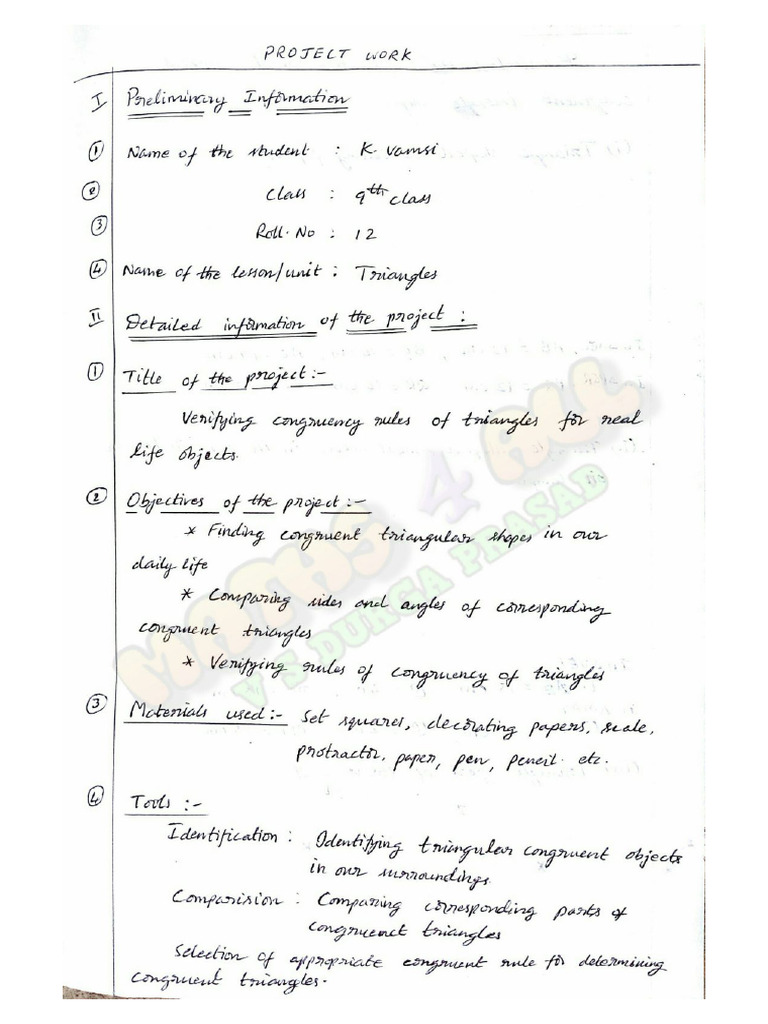 PROJECT WORK
I Preliminary Information
① Name of the student : K. Vamsi
② Class : 9th class
③ Roll. No : 12
④ Name of the lesson/unit : Triangles
II Detailed information of the project :
① Title of the project :-
Verifying congruency rules of triangles for real
life objects.
② Objectives of the project :-
* Finding congruent triangular shapes in our
daily life
* Comparing sides and angles of corresponding
congruent triangles
* Verifying rules of congruency of triangles
③ Materials used :- Set squares, decorating papers, scale,
protractor, paper, pen, pencil. etc.
④ Tools :-
Identification : Identifying triangular congruent objects
in our surroundings.
Comparision : Comparing corresponding parts of
congruenct triangles
Selection of appropriate congruent rule for determining
congruent triangles.
MATHS 4 ALL
V S DURGA PRASAD